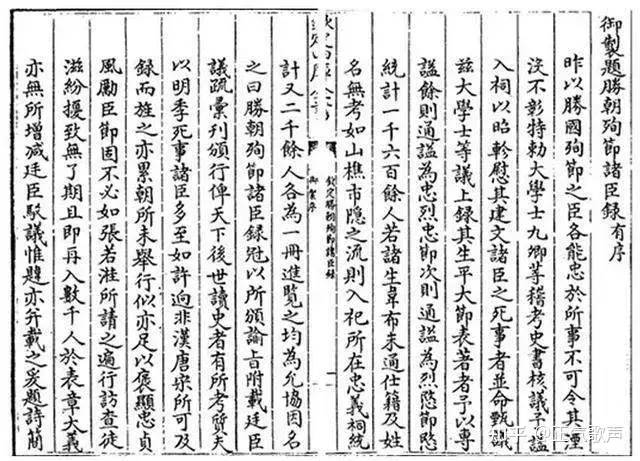 御製題勝朝殉節諸臣錄有序
昨以勝國殉節之臣各能忠於所事不可令其湮
沒不彰特勅大學士九卿等稽考史書核議予謚
入祠以昭軫慰其建文諸臣之死事者並命甄議
茲大學士等議上錄其生平大節表著者予以專
謚餘則通謚為忠烈忠節次則通謚為烈愍節愍
統計一千六百餘人若諸生韋布未通仕籍及姓
名無考如山樵市隐之流則入祀所在忠義祠統
欽定勝朝殉節諸臣錄
御製序
計又二千餘人各為一冊進覽之均為允協因名
之曰勝朝殉節諸臣録冠以所頒諭旨附載廷臣
議疏彙刊頒行俾天下後世讀史者有所考質夫
以明季死事諸臣多至如許迥非漢唐宋所可及
録而旌之亦累朝所未舉行似亦足以褒顯忠貞
風勵臣節固不必如張若淮所請之遍行訪查徒
滋紛擾致無了期且即再入數千人於表章大義
亦無所增减廷臣駁議惟韙亦并載之爰題詩簡
知乎 @正气歌声